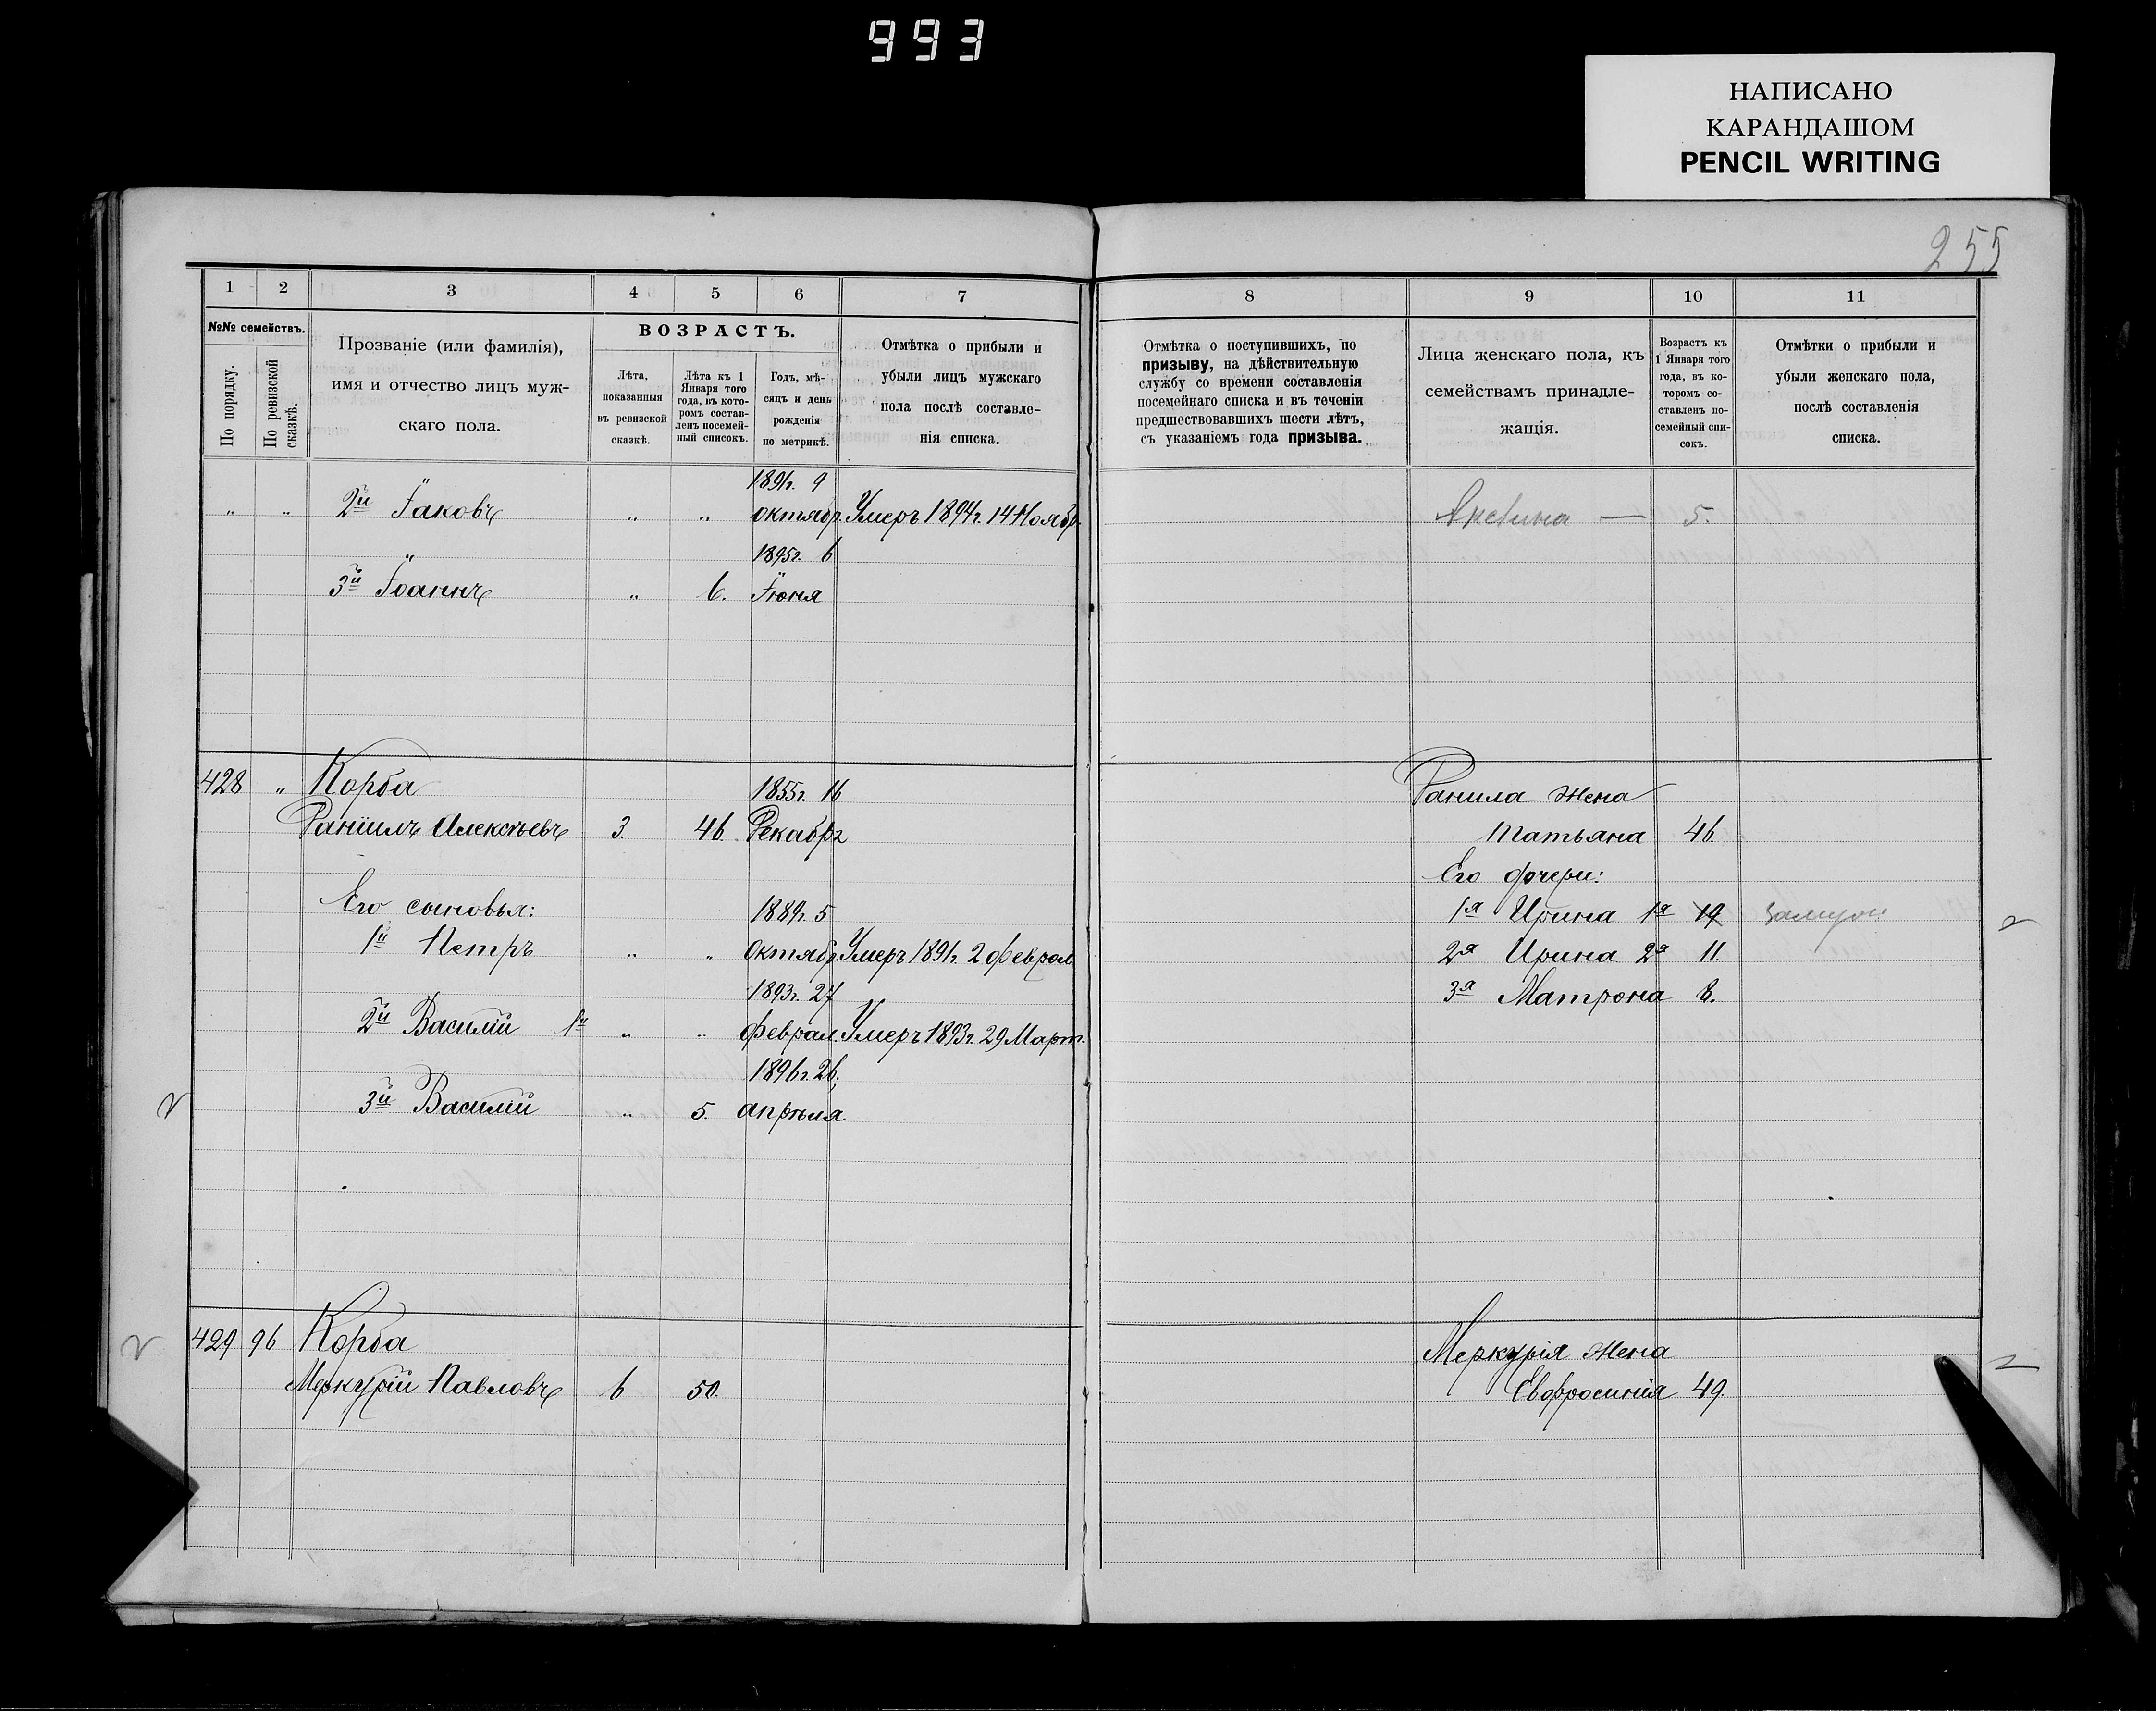 993
НАПИСАНО
КАРАНДАШОМ
PENCIL WRITING
255
1 2 3 4 5 6 7
№№ семействъ.
По порядку.
По ревизской сказкѣ.
Прозваніе (или фамилія),
имя и отчество лицъ муж-
скаго пола.
ВОЗРАСТЪ.
Лѣта,
показанныя
въ ревизской
сказкѣ.
Лѣта къ 1
Января того
года, въ кото-
ромъ состав-
ленъ посемей-
ный списокъ.
Годъ, мѣ-
сяцъ и день
рожденія
по метрикѣ.
Отмѣтка о прибыли и
убыли лицъ мужскаго
пола послѣ составле-
нія списка.
1891г. 9
" " 2й Іаковъ " " октябр. Умеръ 1894г. 14 Ноябр.
" 1895г. 6
3й Іоаннъ " 6. Іюня
428 " Корба 1855г. 16
Даніилъ Алексѣевъ 3. 46. Декабр
Его сыновья: 1889г. 5
1й Петръ " " октябр. Умеръ 1891г. 2 феврал
1893г. 27
2й Василій 1й " " феврал. Умеръ 1893г. 29 Март.
1896г. 26.
3й Василій " 5. апрѣля.
429 96 Корба
Меркурій Павловъ 6 50.
8 9 10 11
Отмѣтка о поступившихъ, по
призыву, на дѣйствительную
службу со времени составленія
посемейнаго списка и въ теченіи
предшествовавшихъ шести лѣтъ,
съ указаніемъ года призыва.
Лица женскаго пола, къ
семействамъ принадле-
жащія.
Возрастъ къ
1 Января того
года, въ ко-
торомъ со-
ставленъ по-
семейный спи-
сокъ.
Отмѣтки о прибыли и
убыли женскаго пола,
послѣ составленія
списка.
Аксинна — 5.
Данила жена
Татьяна 46.
Его дочери:
1я Ирина 1я 19
2я Ирина 2я 11.
3я Матрона 8.
Меркурія жена
Евфросинія 49.